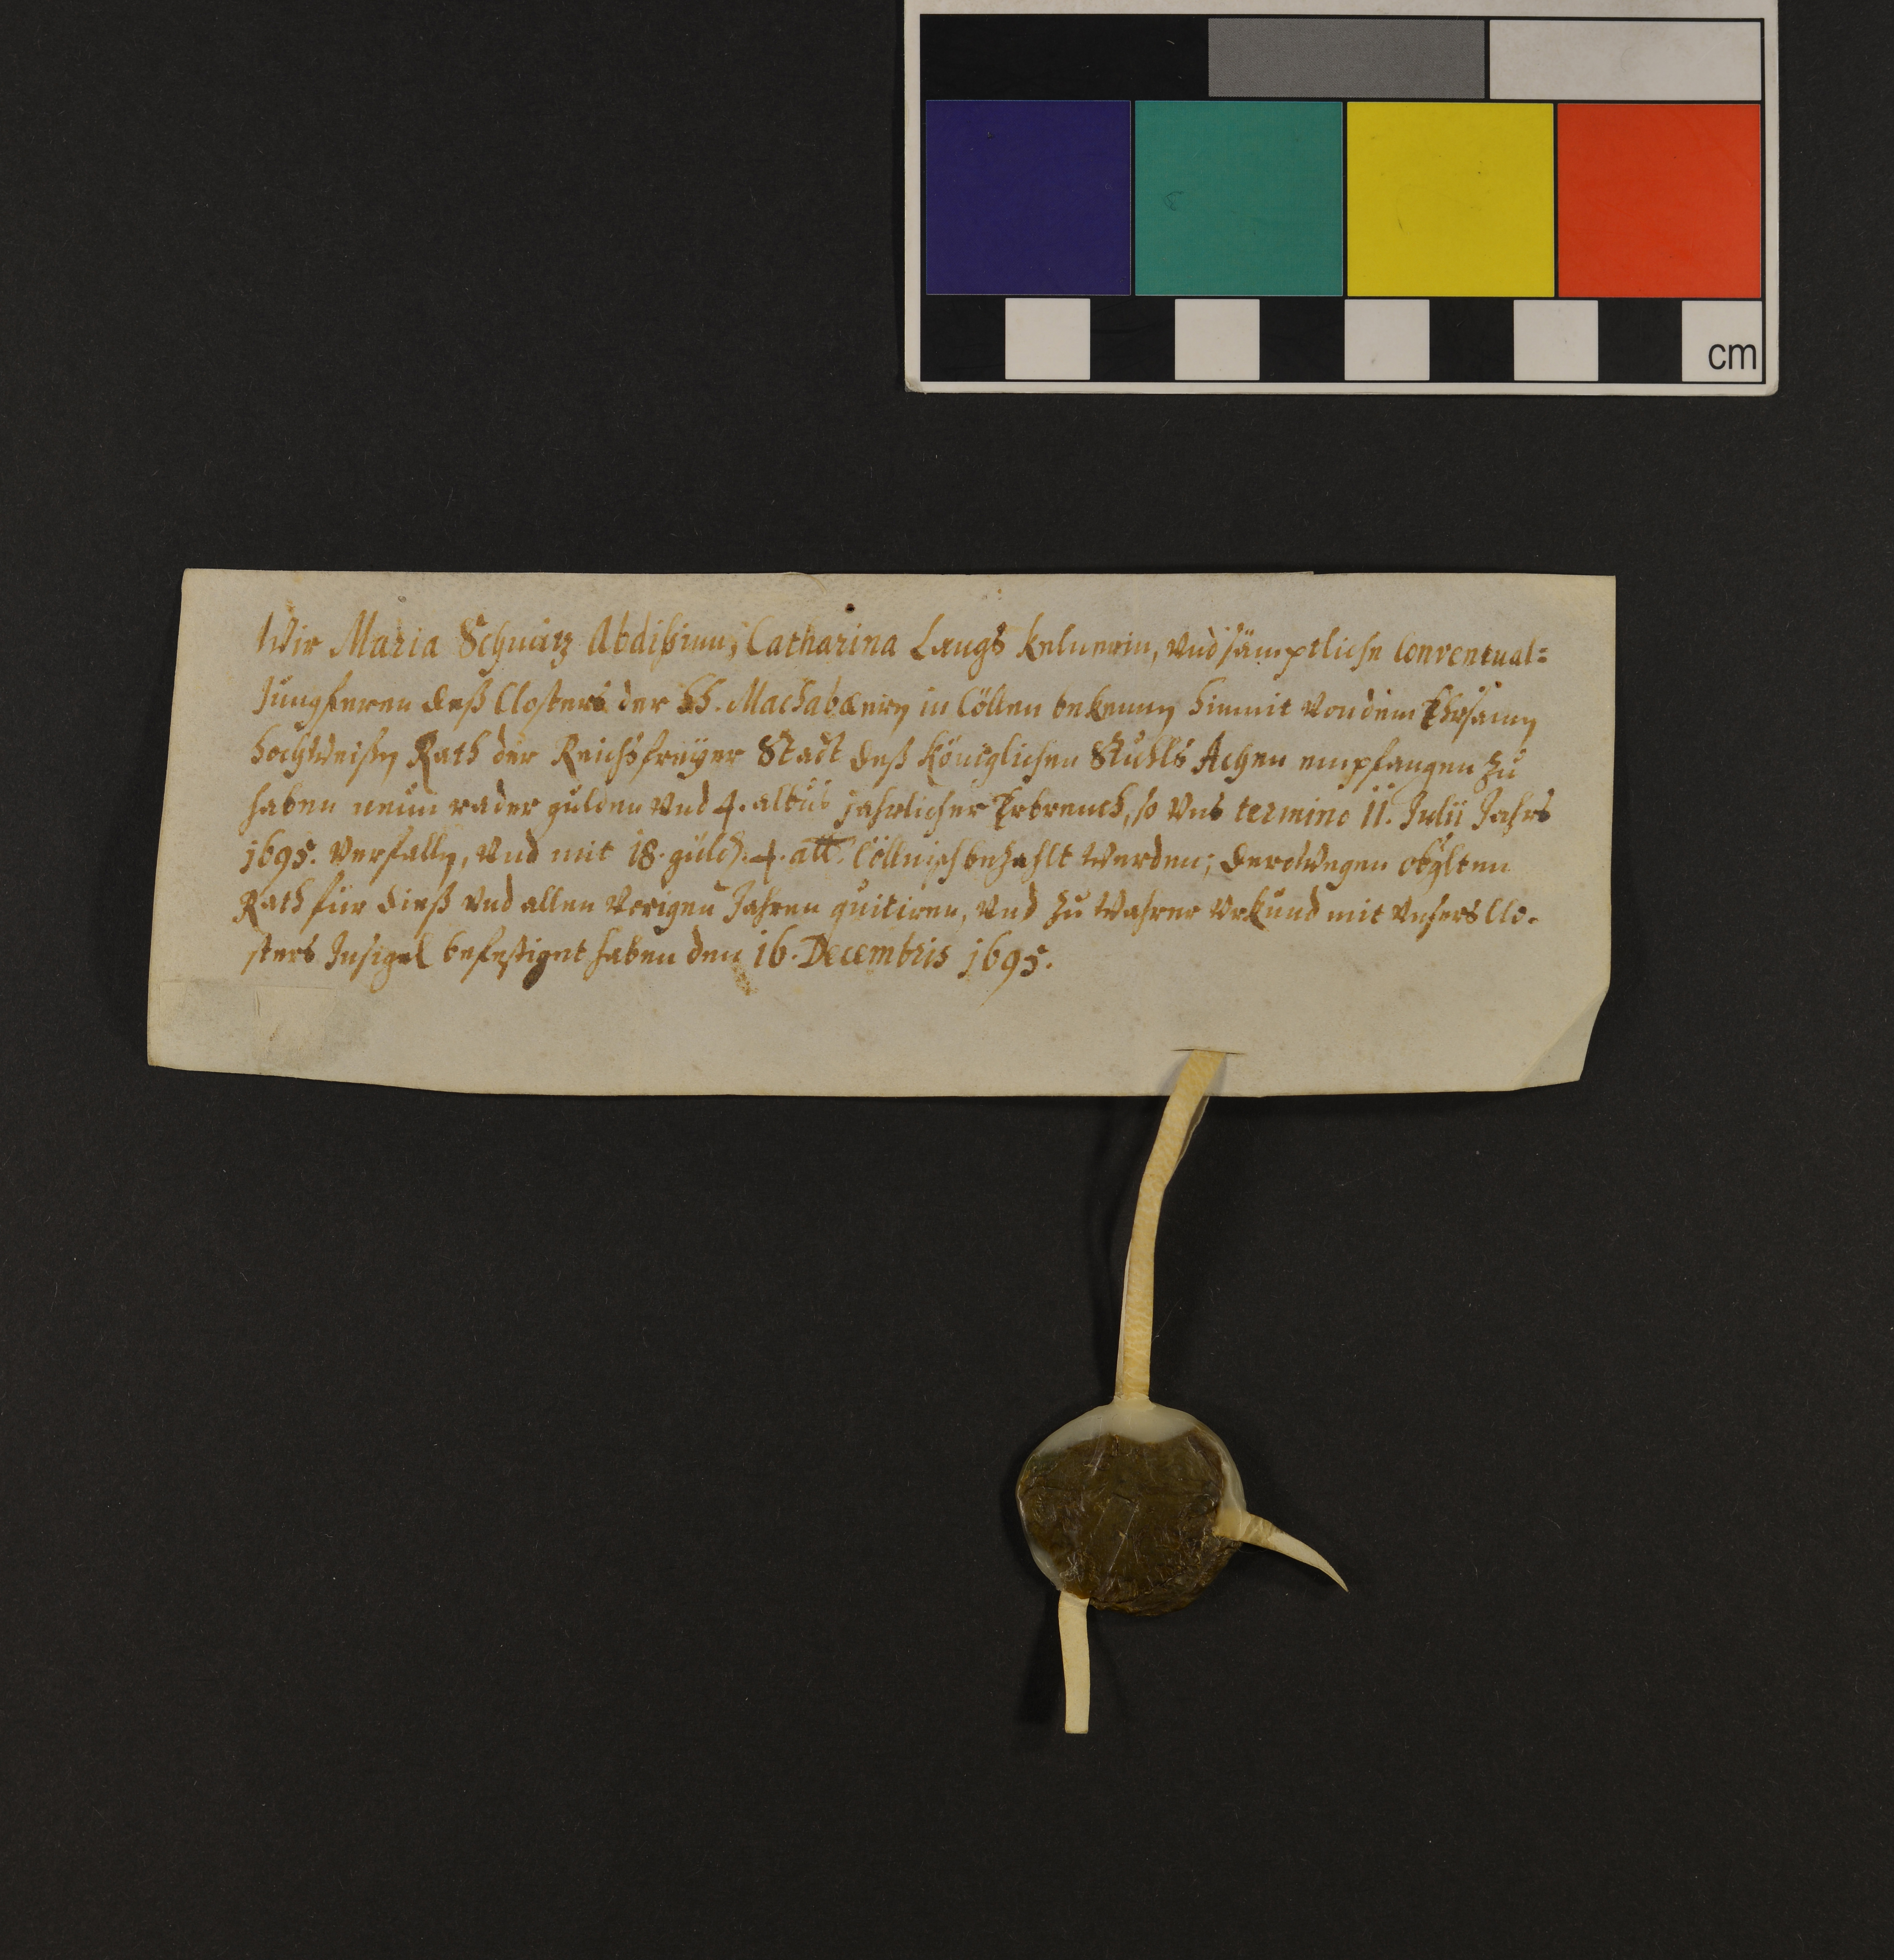 cm
Wir Maria Schnitz Abdißinn, Catharina Langs Kelnerin, und sämptliche Conventual=
Jungferen deß Closters der hh. Machabaeery in Cöllen bekenny hiemit von dem Ehrsamy
hochweißy Rath der Reichsfreyer Stadt deß Königlichen Stuhls Achen empfangen zu
haben neun rader gulden und 4. albus jahrlicher Erbrenth, so uns termino 11. Julii Jahrs
1695. verfally, und mit 18. güld. 4. alb. Cöllnisch bezahlt werden; derowegen obglten
Rath für dieß und allen vorigen Jahren quitiren, und zu wahrer Urkund mit unsers Clo-
sters Insigel befestiget haben den 16. Decembris 1695.